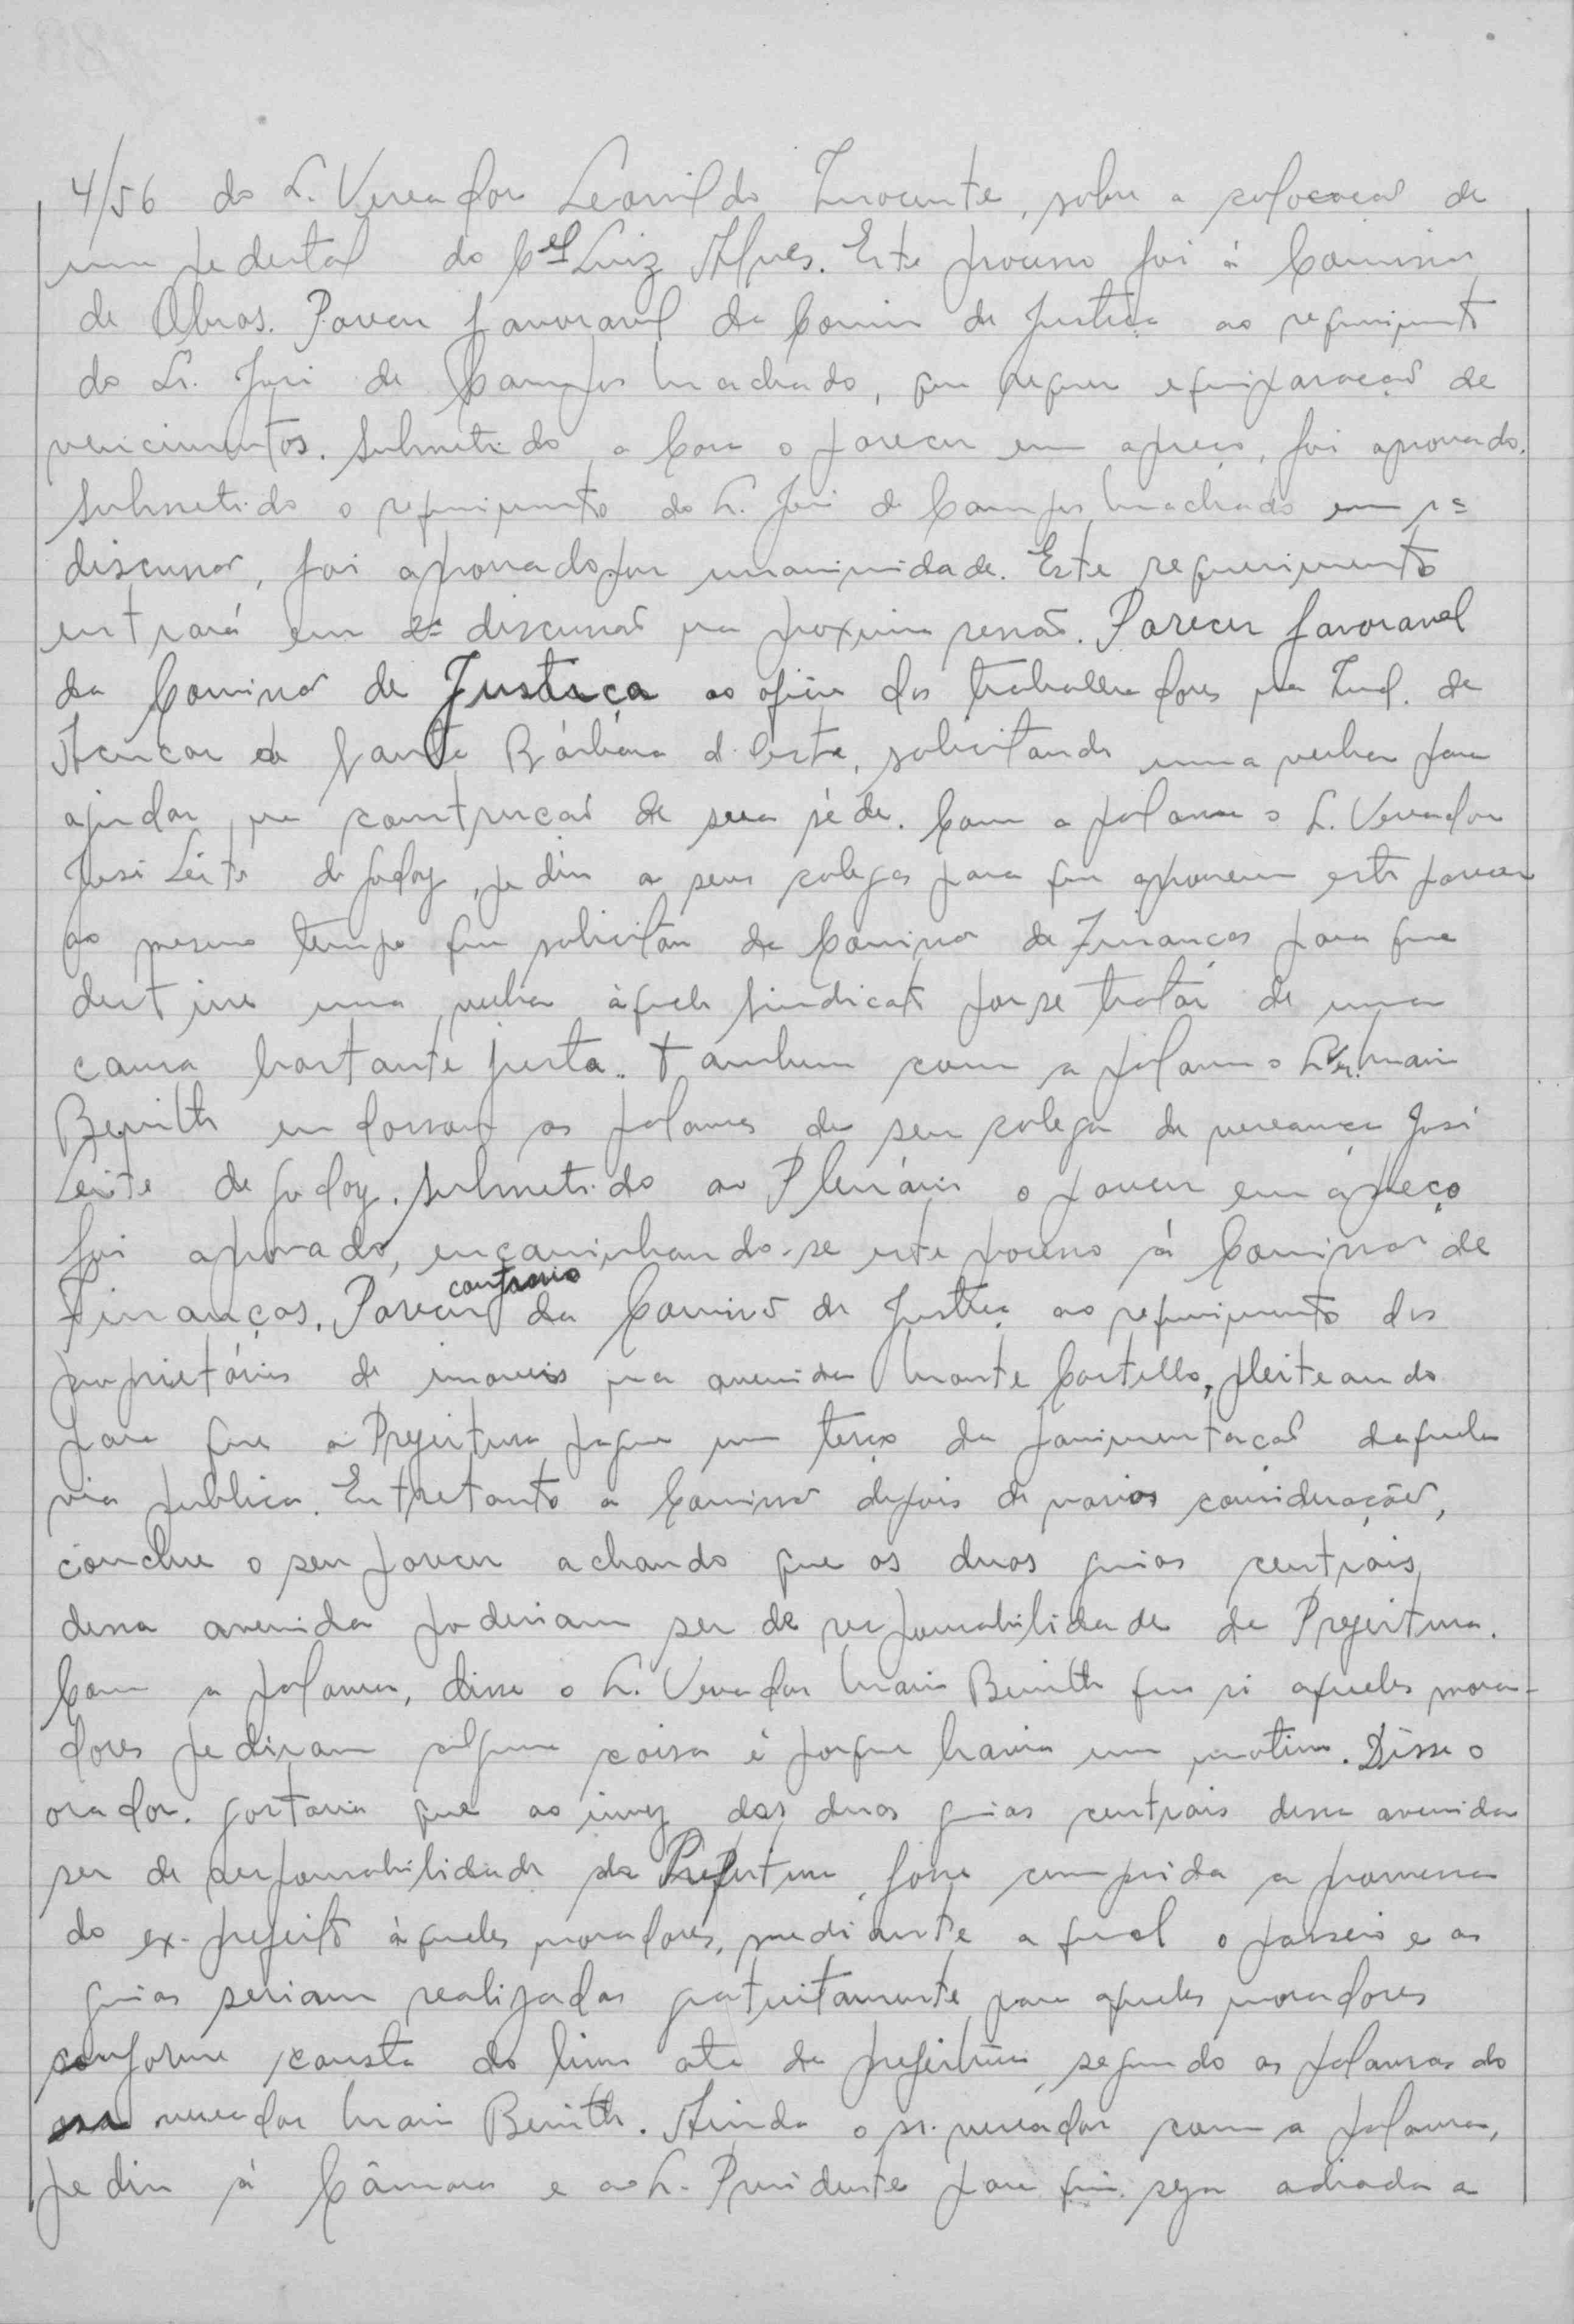 4/56 do Sr. Vereador Leonildo Inocente, sobre a colocacaõ de
um pedestal do Cel Luiz Alves. Este processo foi à Comissão
de Obras. Parecer favoravel da Comissão de Justiça ao requerimento
do Sr. José de Campos Machado, que requer equiparaçaõ de
vencimentos. Submetido a Casa o parecer em apreço, foi aprovado.
Submetido o requerimento do Sr. José de Campos Machado em 1ª
discussão, foi aprovado por unanimidade. Este requerimento
entrará em 2ª discussaõ na proxima sessão. Parecer favoravel
da Comissão de Justiça ao oficio dos trabalhadores na Ind. de
Acucar de Santa Bárbara d'Oeste, solicitando uma verba para
ajudar na construcaõ de sua séde. Com a palavra o Sr. Vereador
José Leite de Godoy, pediu a seus colegas para que aprovem este parecer
ao mesmo tempo que solicitou da Comissão de Finanças para que
destine uma verba àquele sindicato por se tratar de uma
causa bastante justa. Tambem com a palavra o Sr. Ver. Mario
Benith endossou as palavras de seu colega de vereança José
Leite de Godoy. Submetido ao Plenário o parecer em apreço
foi aprovado, encaminhando-se este processo à Comissão de
Finanças. Parecer contrario da Comissão de Justiça ao requerimento dos
proprietários de imoveis na avenida Monte Castello, pleiteando
para que a Prefeitura pague um terço da pavimentacaõ daquela
via publica. Entretanto a Comissão depois de varias considerações,
conclue o seu parecer achando que as duas guias centrais
dessa avenida poderiam ser de responsabilidade da Prefeitura.
Com a palavra, disse o Sr. Vereador Mario Benith que si aqueles mora-
dores pediram alguma coisa é porque havia um motivo. Disse o
orador. gostaria que ao invez das duas guias centrais dessa avenida
ser de responsabilidade da Prefeitura, fosse cumprida a promessa
do ex-prefeito àqueles moradores, mediante a qual o passeio e as
guias seriam realizadas gratuitamente para aqueles moradores
conforme consta do livro ata da prefeitura, segundo as palavras do
vereador Mario Benith. Ainda o sr. vereador com a palavra,
pediu à Câmara e ao Sr. Presidente para que seja adiada a